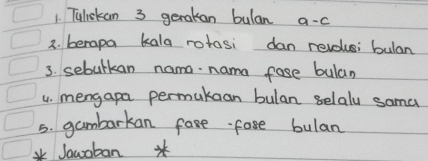 1. Tuliskan 3 gerakan bulan a-c
2. berapa kala rotasi dan revolusi bulan
3. sebutkan nama-nama fase bulan
4. mengapa permukaan bulan selalu sama
5. gambarkan fase-fase bulan
* Jawaban *